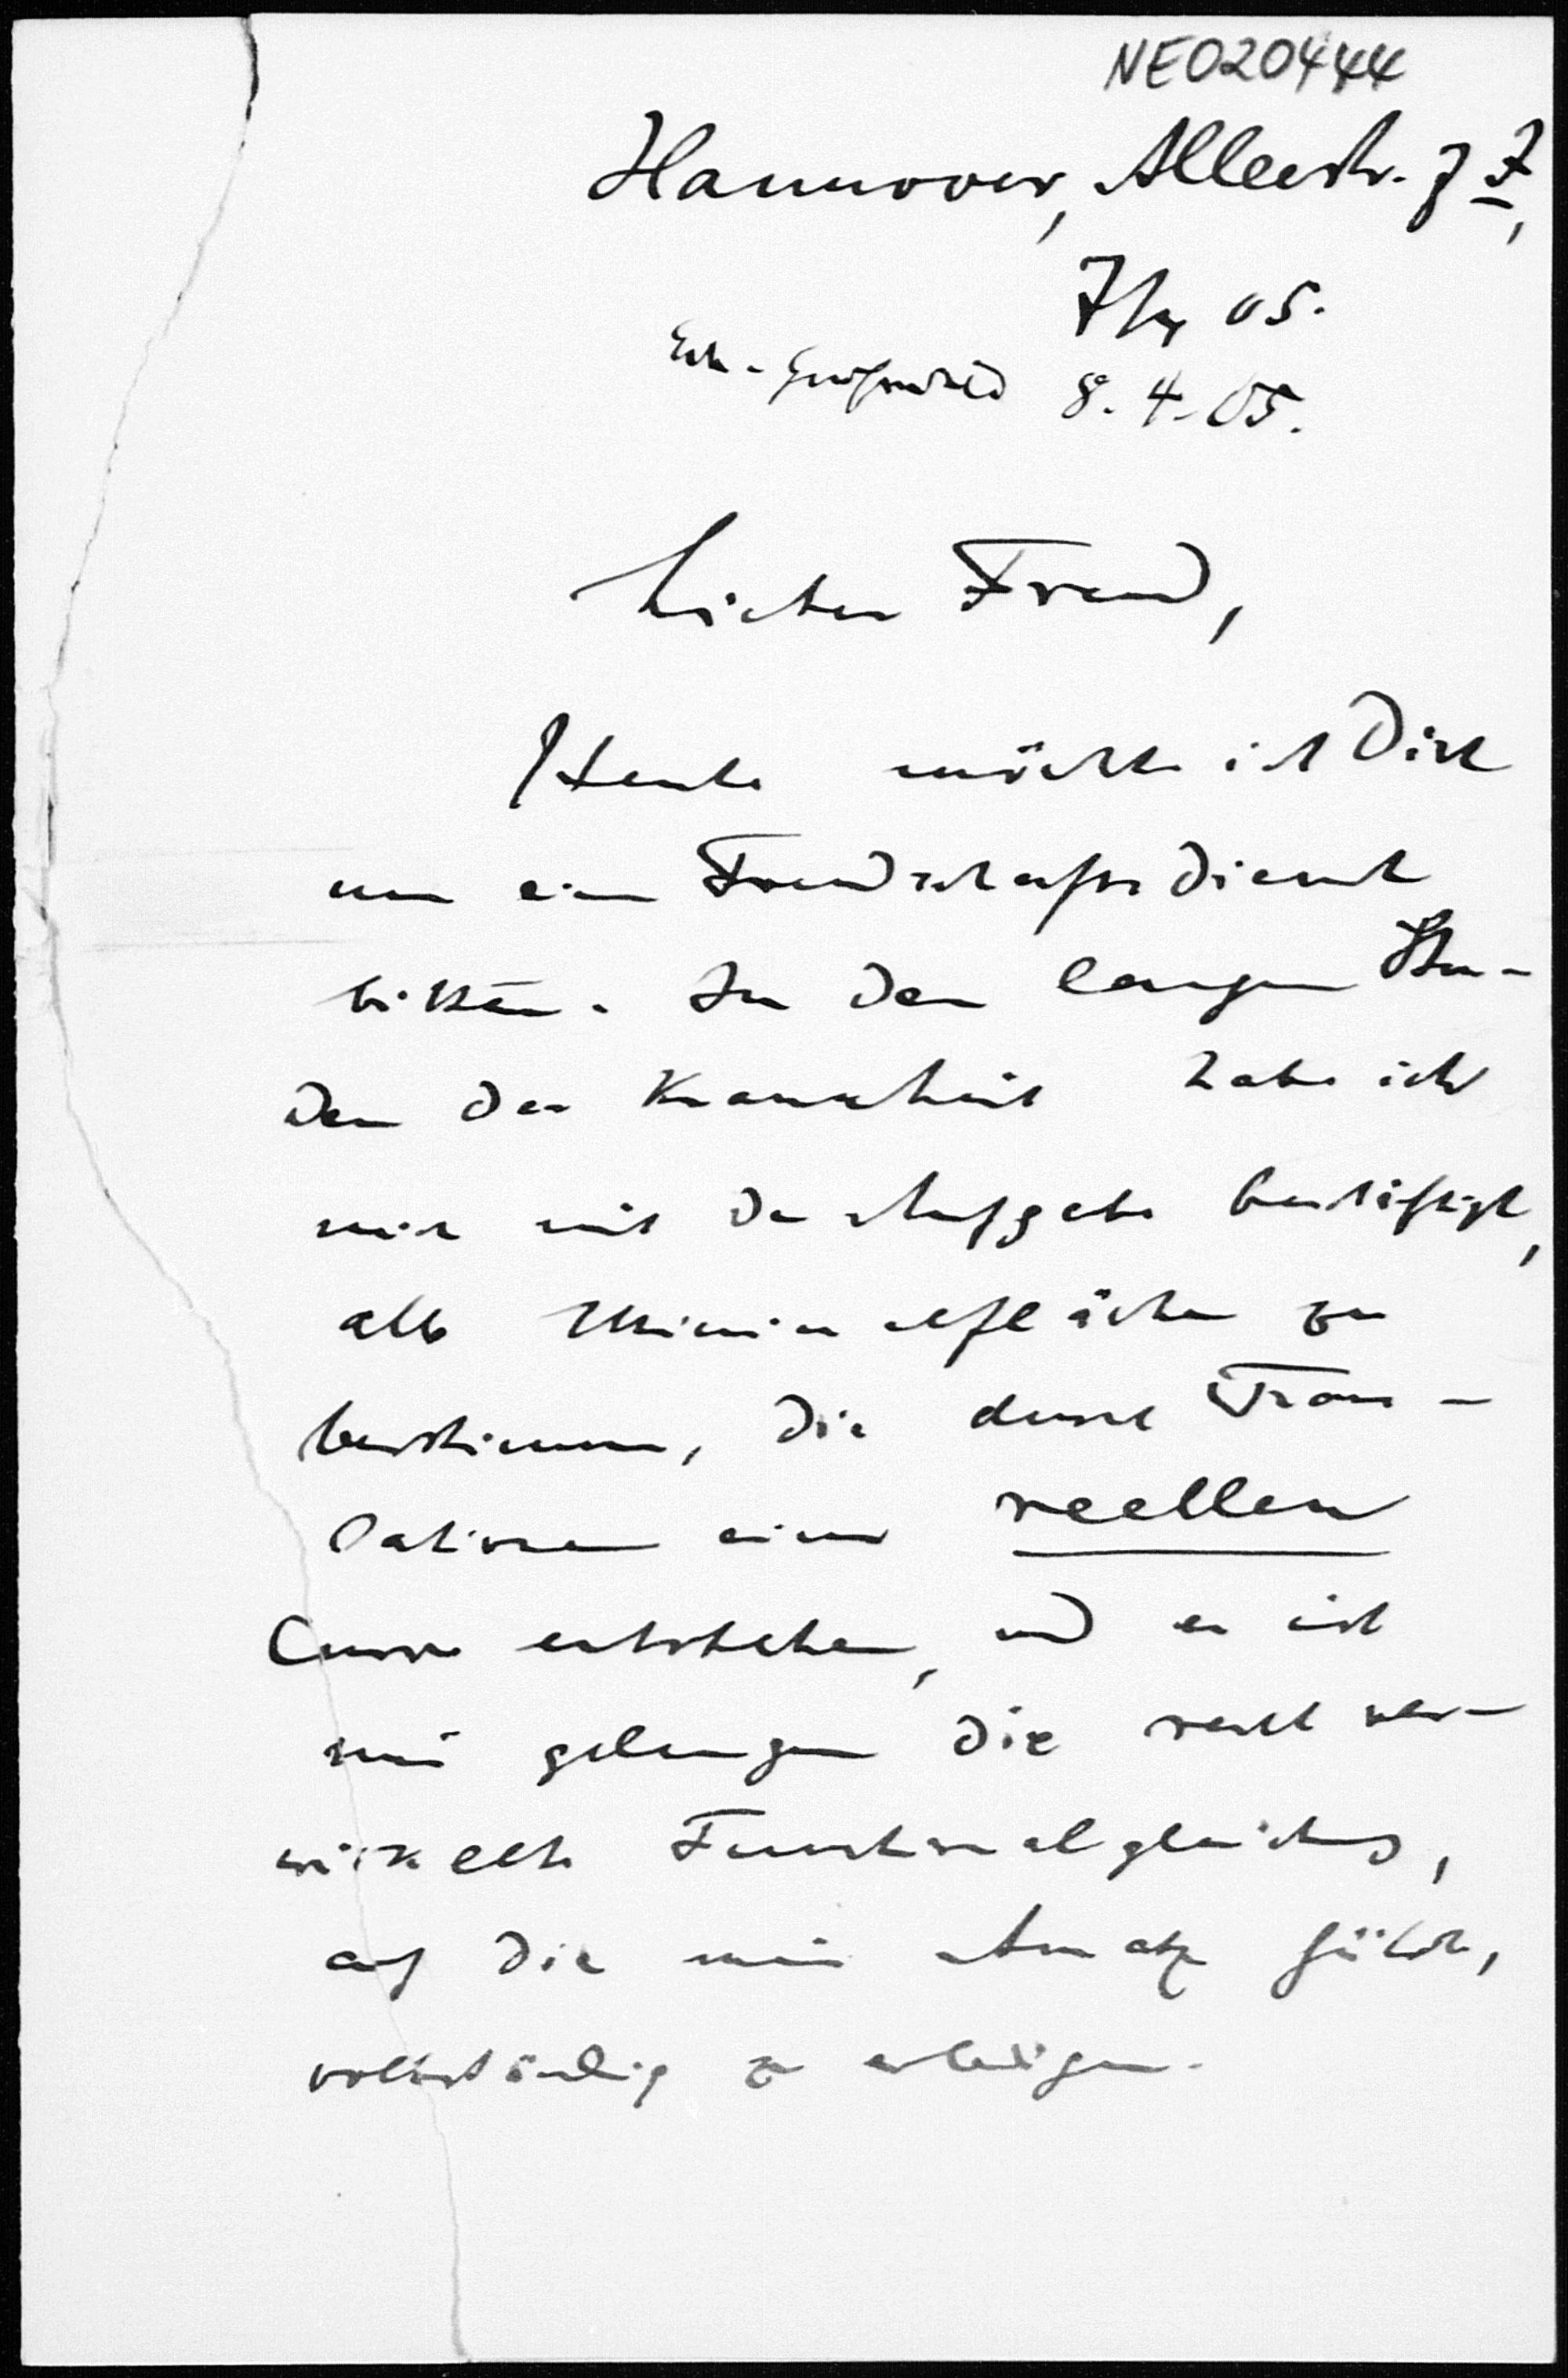 NE020444
Hannover, Alleestr. 7 I,
7/4 05.
Erh. Greifswald 8. 4. 05.
Lieber Freund,
Heute möchte ich Dich
um einen Freundschaftsdienst
bitten. In den langen Stun-
den der Krankheit habe ich
mich mit der Aufgabe beschäftigt,
alle Minimalflächen zu
bestimmen, die durch Trans-
lationen einer reellen
Curve entstehen, und es ist
mir gelungen die recht ver-
wickelte Functionalgleichung,
auf die mein Ansatz führte,
vollständig zu erledigen.